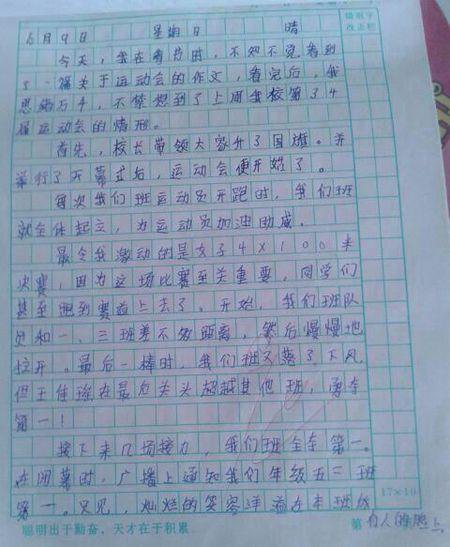 错别字
改正栏
6月9日 星期日 晴
今天，我在看书时，不知不觉看到
了一篇关于运动会的作文，看完后，我
思绪万千，不禁想到了上周我校第34
届运动会的情形。
首先，校长带领大家升了国旗。并
举行了开幕式后，运动会便开始了。
每次我们班运动员开跑时，我们班
就全体起立，为运动员加油助威。
最令我激动的是女子4×100米
决赛，因为这场比赛至关重要，同学们
甚至跑到赛道上去了。开始，我们班队
员和一、三班差不多距离，然后慢慢地
拉开。最后一棒时，我们班又落了下风
但王佳 在最后关头超越其他班，勇夺
第一！
接下来几场接力，我们班全夺第一。
在闭幕时，广播上通知我们年级五三班
第一。只见，灿烂的笑容洋溢在本班成
17×16
聪明出于勤奋，天才在于积累 第 的人的脸上